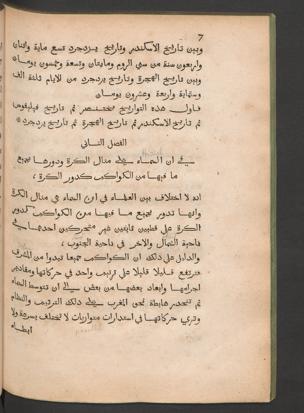 7
وبين تاريخ الاسكندر وتاريخ يزدجرد تسع ماية واثنان
واربعون سنة من سني الروم ومايتان وتسعة وخمسون يوما
وبين تاريخ الهجرة وتاريخ يزدجرد من الايام ثلثة الف
وستماية واربعة وعشرون يوما
فاول هذه التواريخ بختنصر ثم تاريخ فيلبوس
ثم تاريخ الاسكندر ثم تاريخ الهجرة ثم تاريخ يزدجرد
الفصل الثاني
في ان السماء على مثال الكرة ودورها بجميع
ما فيها من الكواكب كدور الكرة
انه لا اختلاف بين العلماء في ان السماء على مثال الكرة
وانها تدور بجميع ما فيها من الكواكب كدور
الكرة على قطبين ثابتين غير متحركين احدهما في
ناحية الشمال والاخر في ناحية الجنوب
والدليل على ذلك ان الكواكب جميعا تبدوا من المشرق
فترتفع قليلا قليلا على ترتيب واحد في حركاتها ومقادير
اجرامها وابعاد بعضها من بعض الى ان تتوسط السماء
ثم تنحدر هابطة نحو المغرب على ذلك الترتيب والنظام
وترى حركاتها في استدارات متوازيات لا تختلف بسرعة ولا
ابطاء